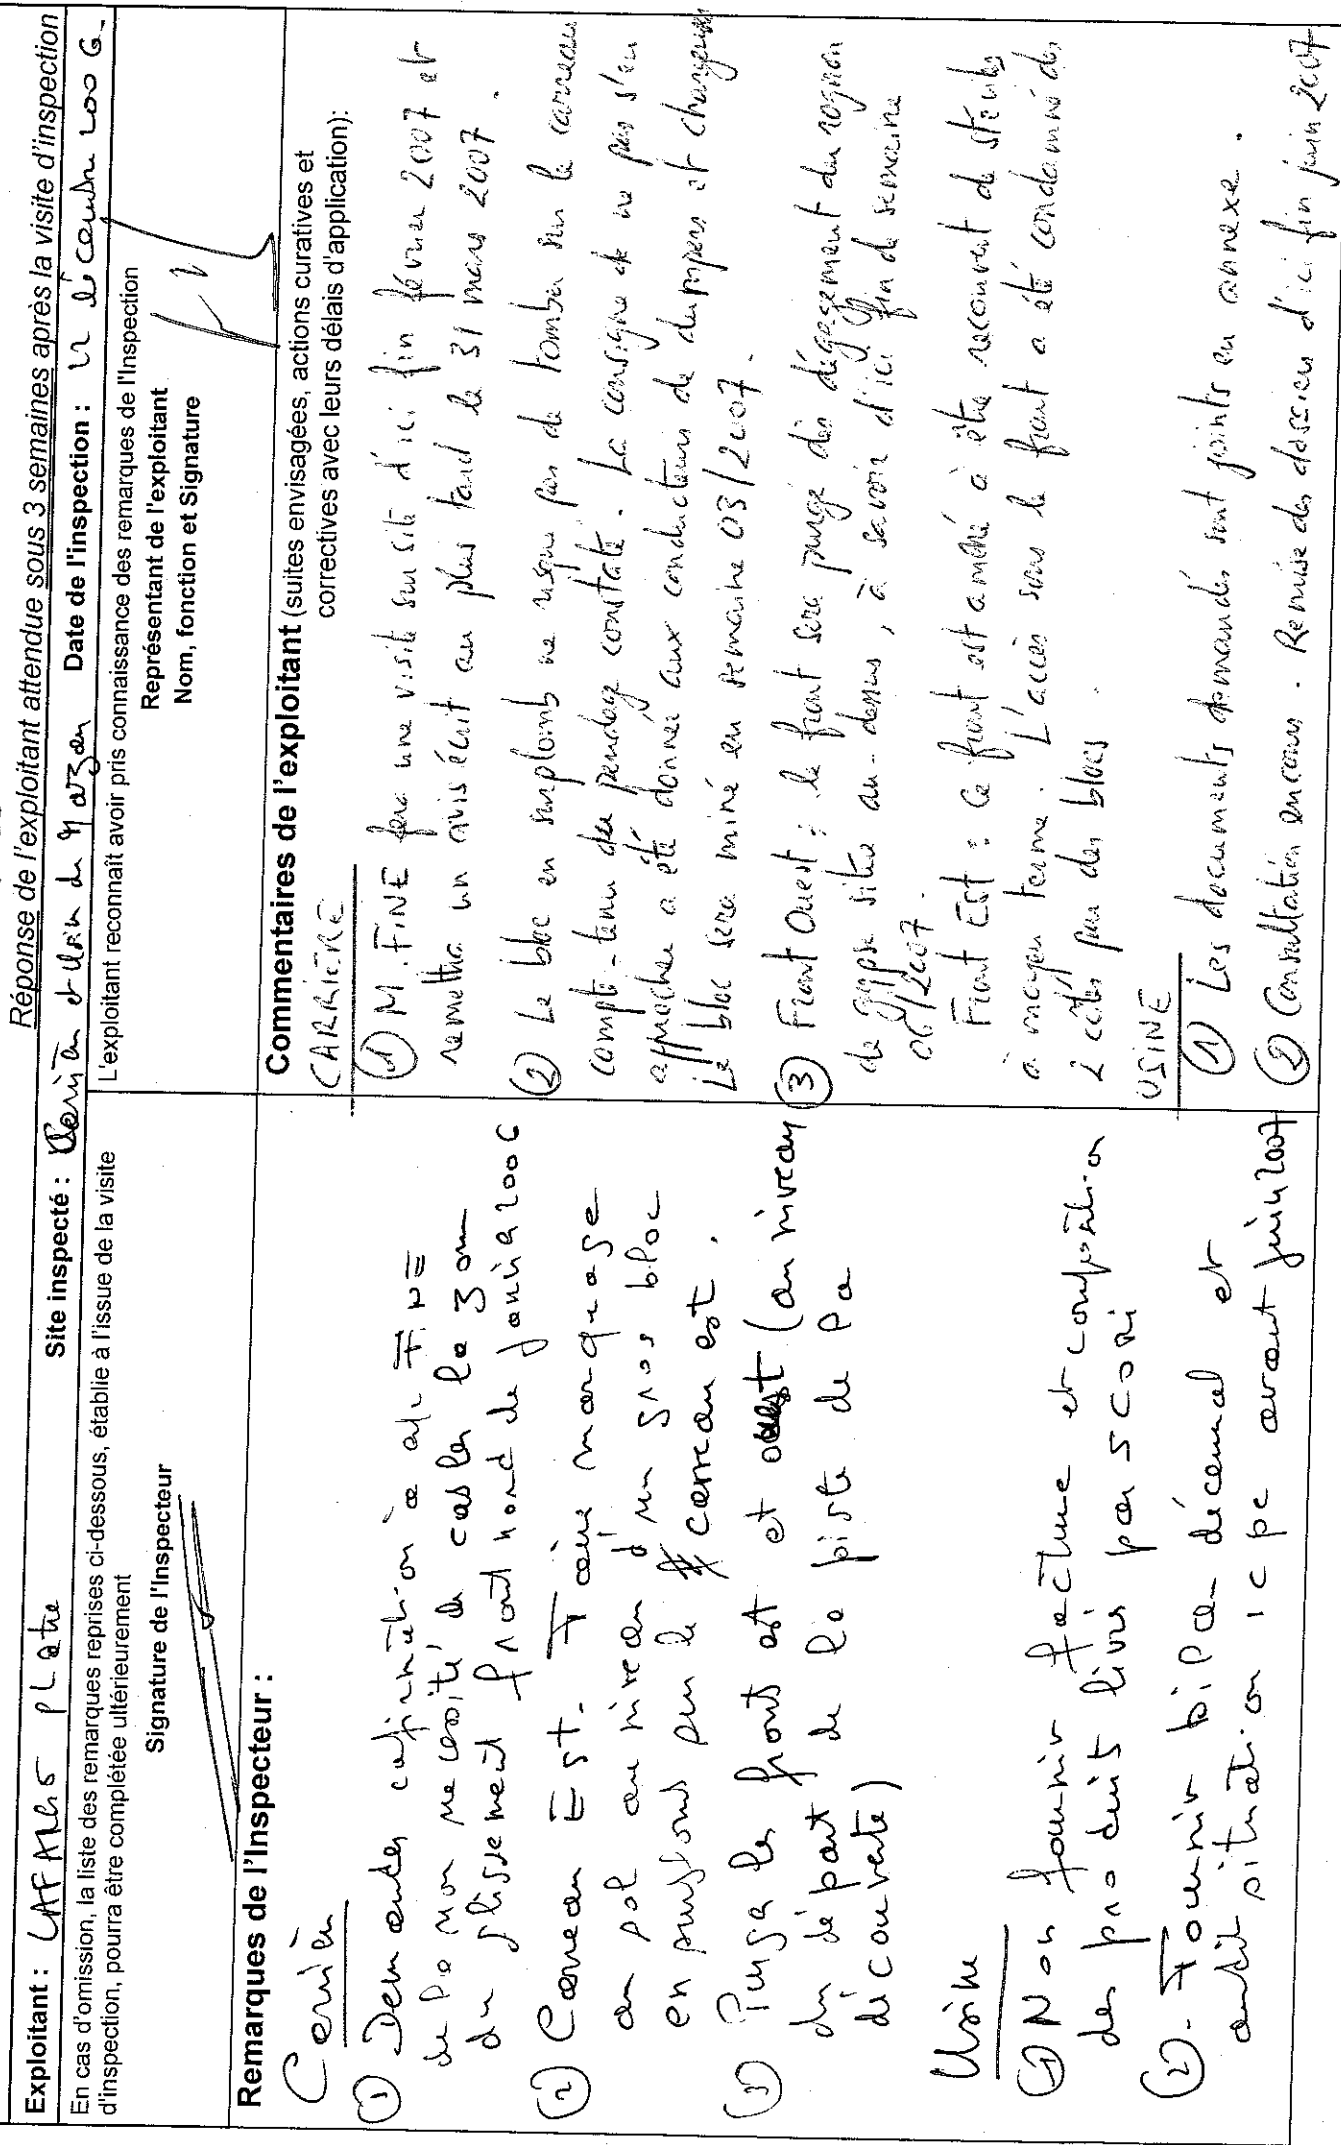 Réponse de l'exploitant attendue sous 3 semaines après la visite d'inspection
Exploitant : LAFARGE platre Site inspecté : Carrière et usine de Mazan Date de l'inspection : 22 décembre 2006
En cas d'omission, la liste des remarques reprises ci-dessous, établie à l'issue de la visite
d'inspection, pourra être complétée ultérieurement
Signature de l'Inspecteur
L'exploitant reconnaît avoir pris connaissance des remarques de l'Inspection
Représentant de l'exploitant
Nom, fonction et Signature
Remarques de l'Inspecteur :
Carrière
① Demander confirmation à Mr FINE
de la non necessité de casser le 3 ème
du glissement front nord de janvier 2006
② Carreau Est. Faire marquage
au sol au niveau d'un gros bloc
en surplomb sur le carreau est.
③ Purger les fronts est et ouest (au niveau
du départ de la piste de la
découverte)
Usine
① Nous fournir facture et composition
des produits livrés par SCORI
② - Fournir bilan décennal et
audit situation icpe avant juin 2007
Commentaires de l'exploitant (suites envisagées, actions curatives et
correctives avec leurs délais d'application):
CARRIERE
① M. FINE fera une visite sur site d'ici fin février 2007 et
remettra un avis écrit au plus tard le 31 mars 2007.
② Le bloc en surplomb ne risque pas de tomber sur le carreau
compte-tenu du pendage constaté. La consigne de ne pas s'en
approcher a été donnée aux conducteurs de dumpers et chargeuses
Le bloc sera miné en semaine 03/2007.
③ Front Ouest : le front sera purgé dès dégagement du rognon
de gypse situé au-dessus, à savoir d'ici fin de semaine
06/2007.
Front EST : ce front est amené à être recouvert de stériles
à moyen terme. L'accès sous le front a été condamné des
2 côtés par des blocs.
USINE
① Les documents demandés sont joints en annexe.
② Consultation en cours. Remise des dossiers d'ici fin juin 2007